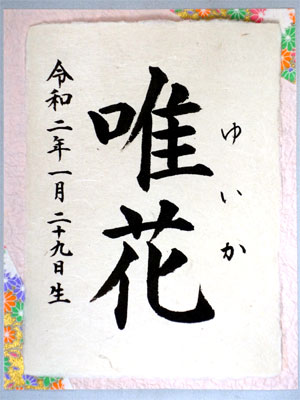 ゆいか
唯花
令和二年一月二十九日生